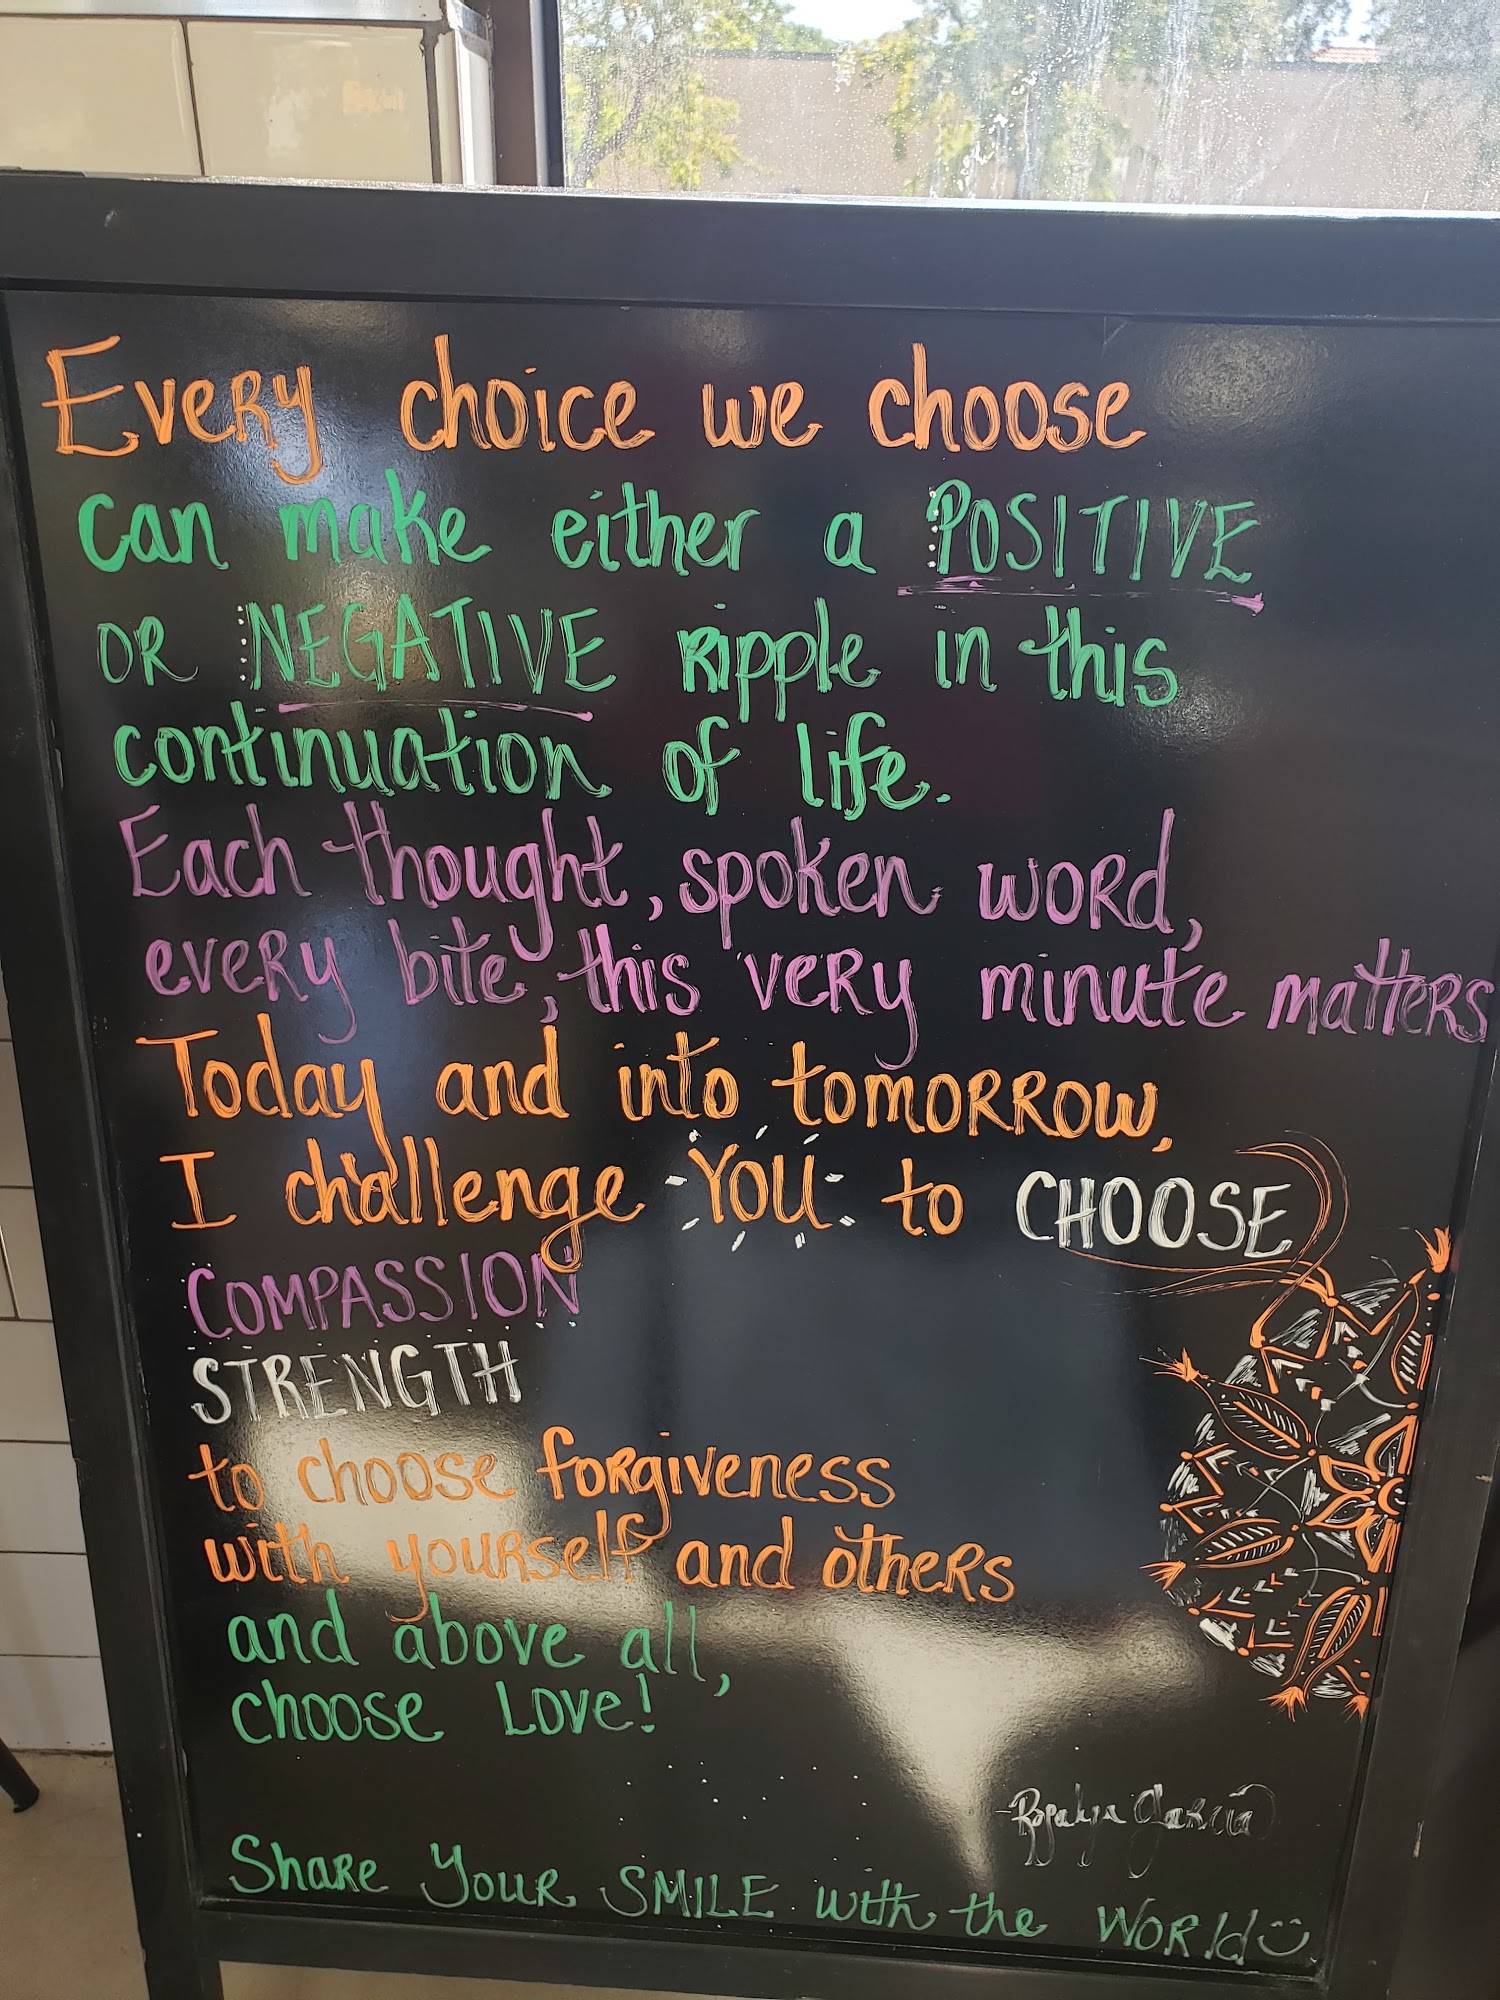 Every choice we choose
can make either a POSITIVE
OR NEGATIVE Ripple in this
continuation of life.
Each thought, spoken word,
every bite, this very minute matters
Today and into tomorrow,
I challenge YOU to CHOOSE
COMPASSION
STRENGTH
to choose forgiveness
with yourself and others
and above all,
choose Love!
Garcia
Share Your SMILE with the World